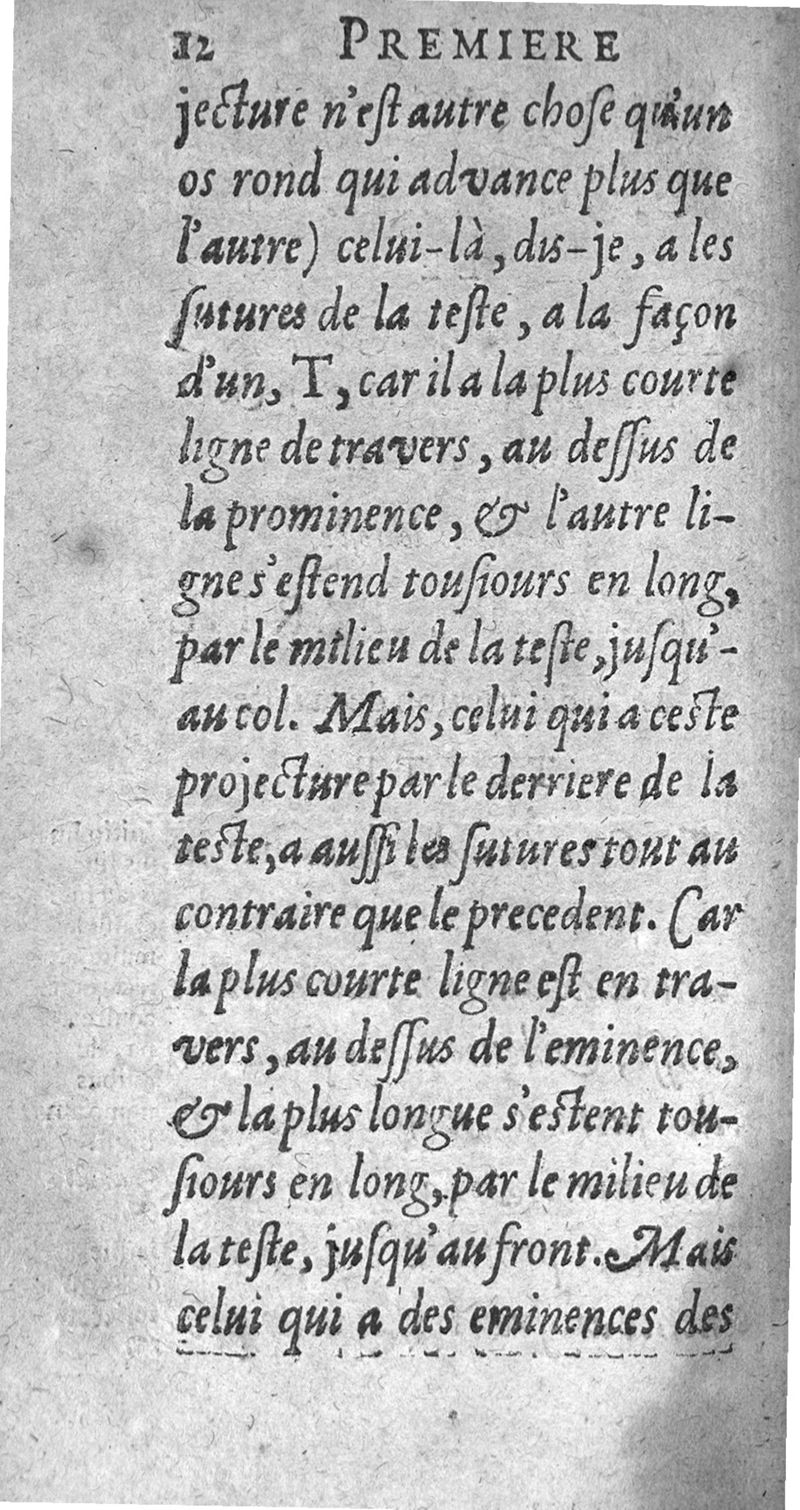 12 PREMIERE
jecture n'eſt autre choſe qu'un
os rond qui advance plus que
l'autre) celui-là, dis-je, a les
ſutures de la teſte, a la façon
d'un, T, car il a la plus courte
ligne de travers, au deſſus de
la prominence, & l'autre li-
gne s'eſtend touſiours en long,
par le milieu de la teſte, juſqu'-
au col. Mais, celui qui a ceſte
projecture par le derriere de la
teſte, a auſſi les ſutures tout au
contraire que le precedent. Car
la plus courte ligne eſt en tra-
vers, au deſſus de l'eminence,
& la plus longue s'eſtent tou-
ſiours en long, par le milieu de
la teſte, juſqu'au front. Mais
celui qui a des eminences des